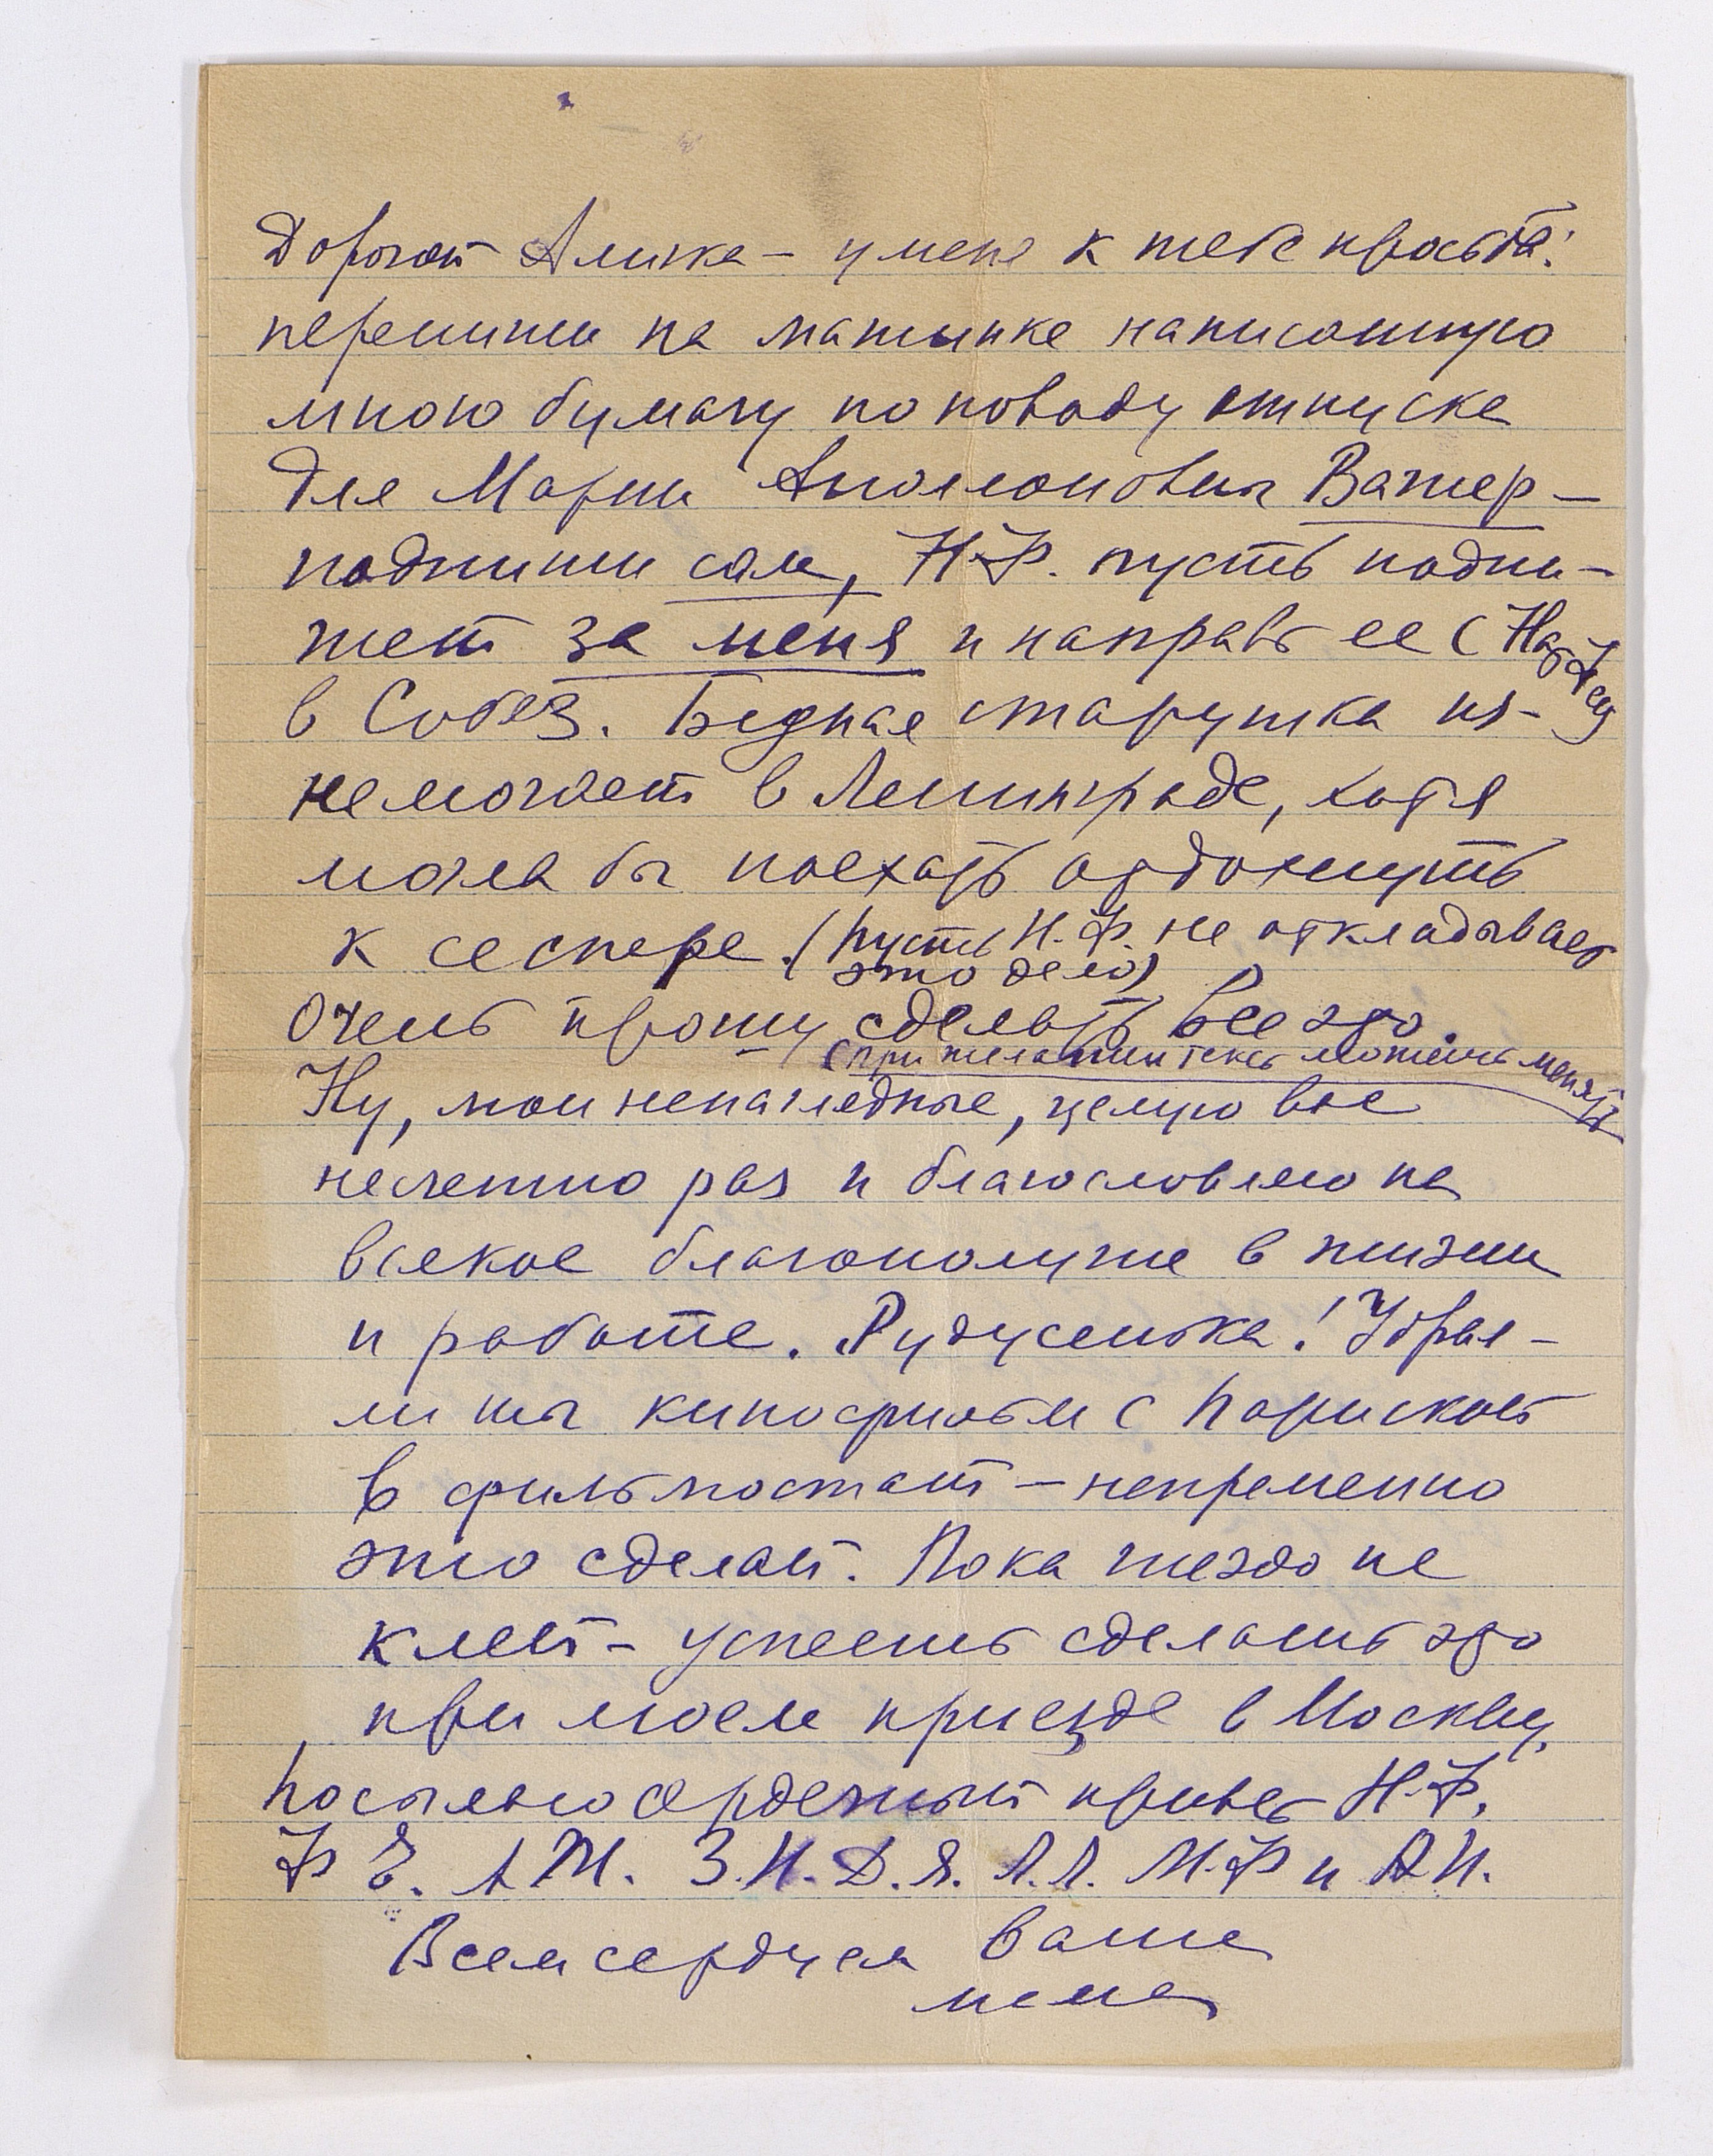 Дорогой Алика – у меня к тебе просьба:
перепиши на машинке написанную
мною бумагу по поводу отпуска
для Марии Аполлоновны Вагнер –
подпиши сам, Н.Ф. пусть подпи-
шет за меня и направь ее (Над Фед
в Собез. Бедная старушка из-
немогает в Ленинграде, хотя
могла бы поехать отдохнуть
к сестре. (Пусть Н.Ф. не откладывает
это дело)
Очень прошу сделать все это.
(при желании текст можешь менять)
Ну, мои ненаглядные, целую вас
несчетно раз и благословляю на
всякое благополучие в жизни
и работе. Рудусенька! Убрал-
ли ты кинофильм с Пориской
в фильмостат – непременно
это сделай. Пока гнездо не
клей – успеешь сделать это
при моем приезде в Москву.
Посылаю сердечный привет Н.Ф.
Ф Е. А М. З.И. Д.Я. Л.Л. М.Ф и А И.
Всем сердцем ваша
мама